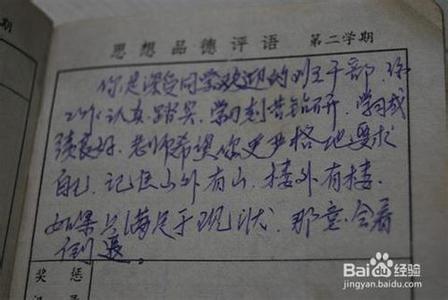 思想品德评语 第二学期
你是深受同学欢迎的班干部，你
工作认真、踏实，学习刻苦钻研，学习成
绩良好。老师希望你更严格地要求
自己，记住山外有山，楼外有楼。
如果只满足于现状，那意会着
倒退。
奖惩
Baidu经验
jingyan.baidu.com